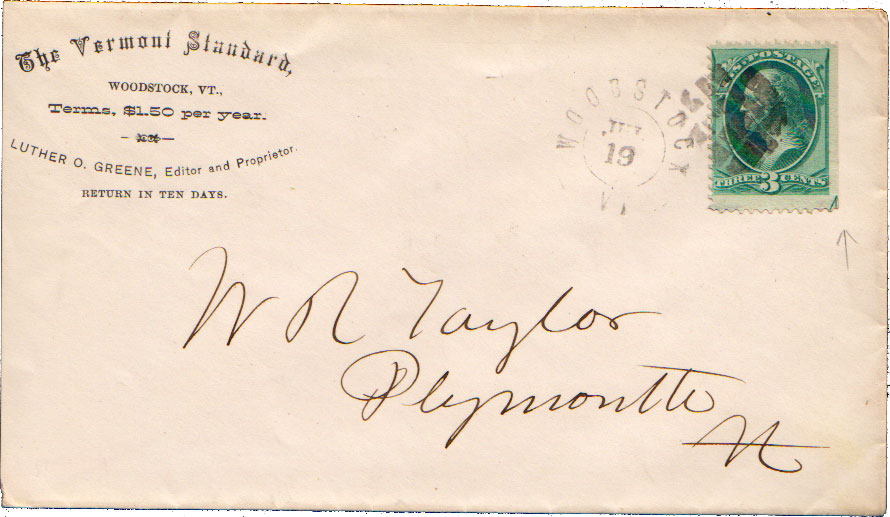 The Vermont Standard,
WOODSTOCK, VT.,
Terms, $1.50 per year.
LUTHER O. GREENE, Editor and Proprietor.
RETURN IN TEN DAYS.
WOODSTOCK
19
VT
U.S. POSTAGE
THREE 3 CENTS
W R Taylor
Plymouth
Vt